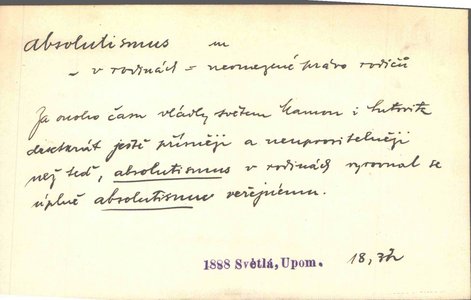 absolutismus m
– v rodinách = neomezené právo rodičů
Za onoho času vládly světem Mamon i
ještě přísněji a neuprositelněji
než teď, absolutismus v rodinách vyrovnal se
úplně absolutismu veřejnému.
1888 Světlá, Upom. 18,